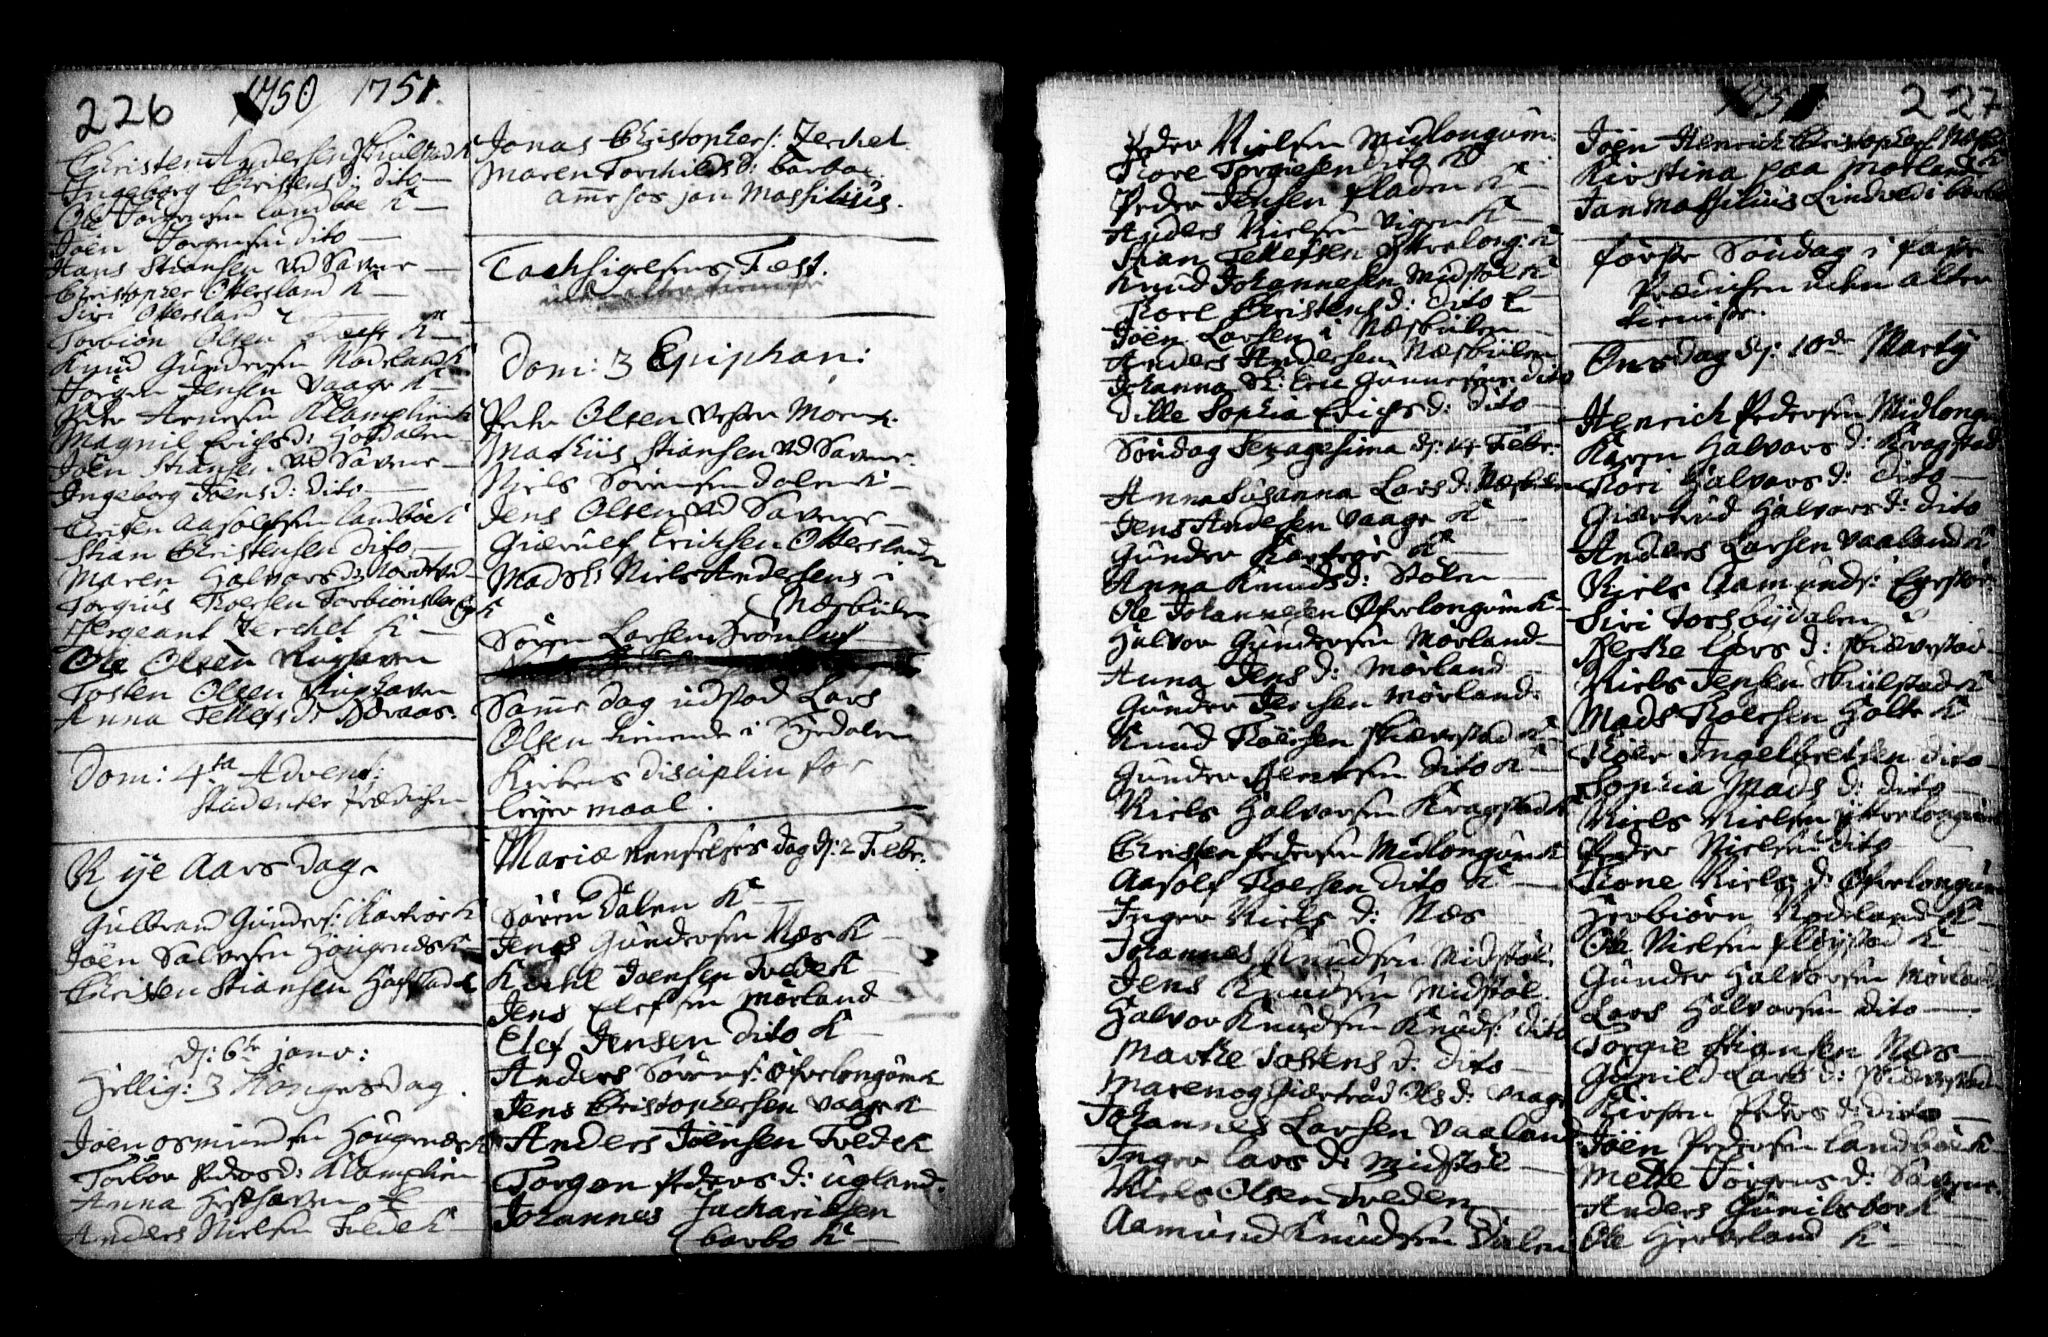 226
1750 1751.
Christen Andersen Skiilstad K
Ingeborg Christens d: dito
Ole Jørgensen Landbøe K
Jöen Jörgensen dito
Hans Stiansen ved Savene
Christopher Ottersland K
Siri Ottersland
Torbiön Olsen K
Knud Gundersen Nodeland K
Jörgen Jensen Vaage K
Peder Arnesen Klamphien K
Magnil Erichs d: Hofdalen
Jöen Stiansen ved Savene
Ingeborg Jöens d: dito
Christen Aasolfsen Landböe K
Stian Christensen dito
Maren Halvors d:
Torgius Roersen Torbiönsbo K
Sergeant Zerchel K
Ole Olsen Kughaven
Tosten Olsen Kughaven
Anna Tellefs d:
Dom: 4ta Advent:
Studenter prædichen
Nÿe Aars Dag
Gulbrand Gunders: Kartvöe K
Jöen Salvesen Hougenæs K
Christen Stiansen Hafstad K
d: 6te janv:
Hellig: 3 Kongers dag.
Jöen Osmundsen Hougenæs K
Torbor Peders d: Klamphien
Anna Heschaven
Anders Nielsen Tvede K
Jonas Christophers: Zerchel
Maren Torchilds d: barboe
Jan Massilius.
Tachsigelsens Fest.
uden altertienniste
Dom: 3 Epiphan:
Peder Olsen Vesten Moen
Mathiis Stiansen ved Savene
Niels Sörensen Dalen K
Jens Olsen ved Savene
Giærulf Erichsen Ottersland
Mads Niels Andersens i
Næsbiulen
Sören Larsen Grönluf
Samme dag udstod Lars
Olsen tienende i Tvedalen
Kirkens disciplin for
leyermaal.
Mariæ Renselses dag d: 2 Febr.
Sören Dalen K
Jens Gundersen Næs K
Kield Joensen Tvede K
Jens Elefsen Mörland
Elef Jensen dito K
Anders Sörens: Öfverlongum K
Jens Christophersen Vaage K
Anders Jöensen Tvede K
Torgon Peders d: Ugland.
Johannes Zachariesen
barbo K
1751 227
Peder Nielsen Midlongum:
Tore Torgiesen dito K
Peder Jensen fladen K
Anders Nielsen Vigen K
Stian Tellefsen Öfverlong: K
Knud Johannesen Midstöl K
Kore Christens d: dito
Jöen Larsen i Næsbiulen
Anders Andersen Næsbiulen
Johanna Sl: Eric Gunnersens dito
Dille Sophia Erichs d: dito
Söndag Sexagesima d: 14 Febr.
Anna Susanna Lars d: Næsbiulen
Jens Andersen Vaage K
Gunder Kartvöe K
Anna Knuds d: Stölen
Ole Johannesen Öfverlongum K
Halvor Gundersen Mörland
Anna Jens d: Mörland
Gunder Jensen Mörland.
Knud Roersen Skiævestad K
Gunder dito K
Niels Halvorsen Kragstad K
Christen Pedersen Midlongum K
Aasolf Roersen dito K
Inger Niels d: Næs
Johannes Knudsen Midstöl
Jens Knudsen Midstöl.
Halvor Knudsen Knuds: dito
Marthe Tostens d: dito
Maren og Giertrud Ols d: Vaage
Johannes Larsen Vaaland
Inger Lars d: Midstöl
Niels Olsen Tveden
Aamund Knudsen Dalen
Jöen Henrich Christophers Næs
Kirstina paa Mörland K
Jan Massilius Lindved i barbo
Förste Söndag i faste
Prædichen uden alter
tieniste.
Onsdag d: 10de Martÿ
Henrich Pedersen Midlongum
Karen Halvors d: Kragstad
Kori Halvors d: dito
Giertrud Halvors d: dito
Anders Larsen Vaaland K
Niels Aamunds:
Siri Torsöydalen
Berthe Lars d: Skiævestad
Niels Jensen Skiilstad K
Mads Roersen Holte K
Roer Ingelbretsen dito
Sophia Mads d: dito
Niels Nielsen Öfverlongum
Peder Nielsen dito
Tone Niels d: Öfverlongum
Herbiörn Nodeland K
Ole Nielsen flöystad K
Gunder Halvorsen Mörland
Lars Halvorsen dito
Torgie Stiansen Næs
Gunild Lars d: Skiævestad
Kirsten Peders d: dito
Jöen Pedersen Landböe K
Mette Jörgens d: Savene
Anders Gunilsboe K
Ole Herreland K